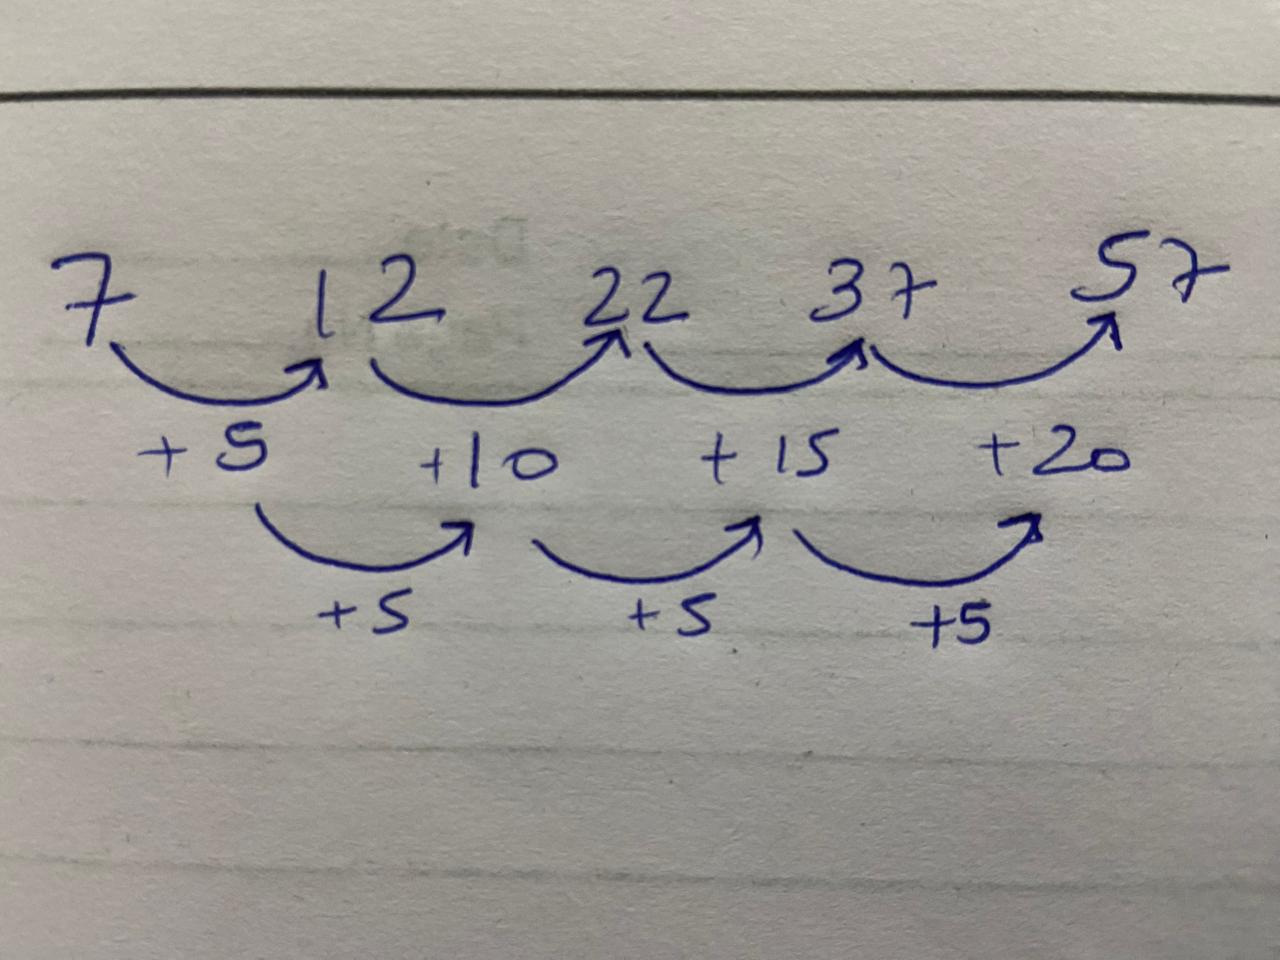 7 12 22 37 57
+5 +10 +15 +20
+5 +5 +5